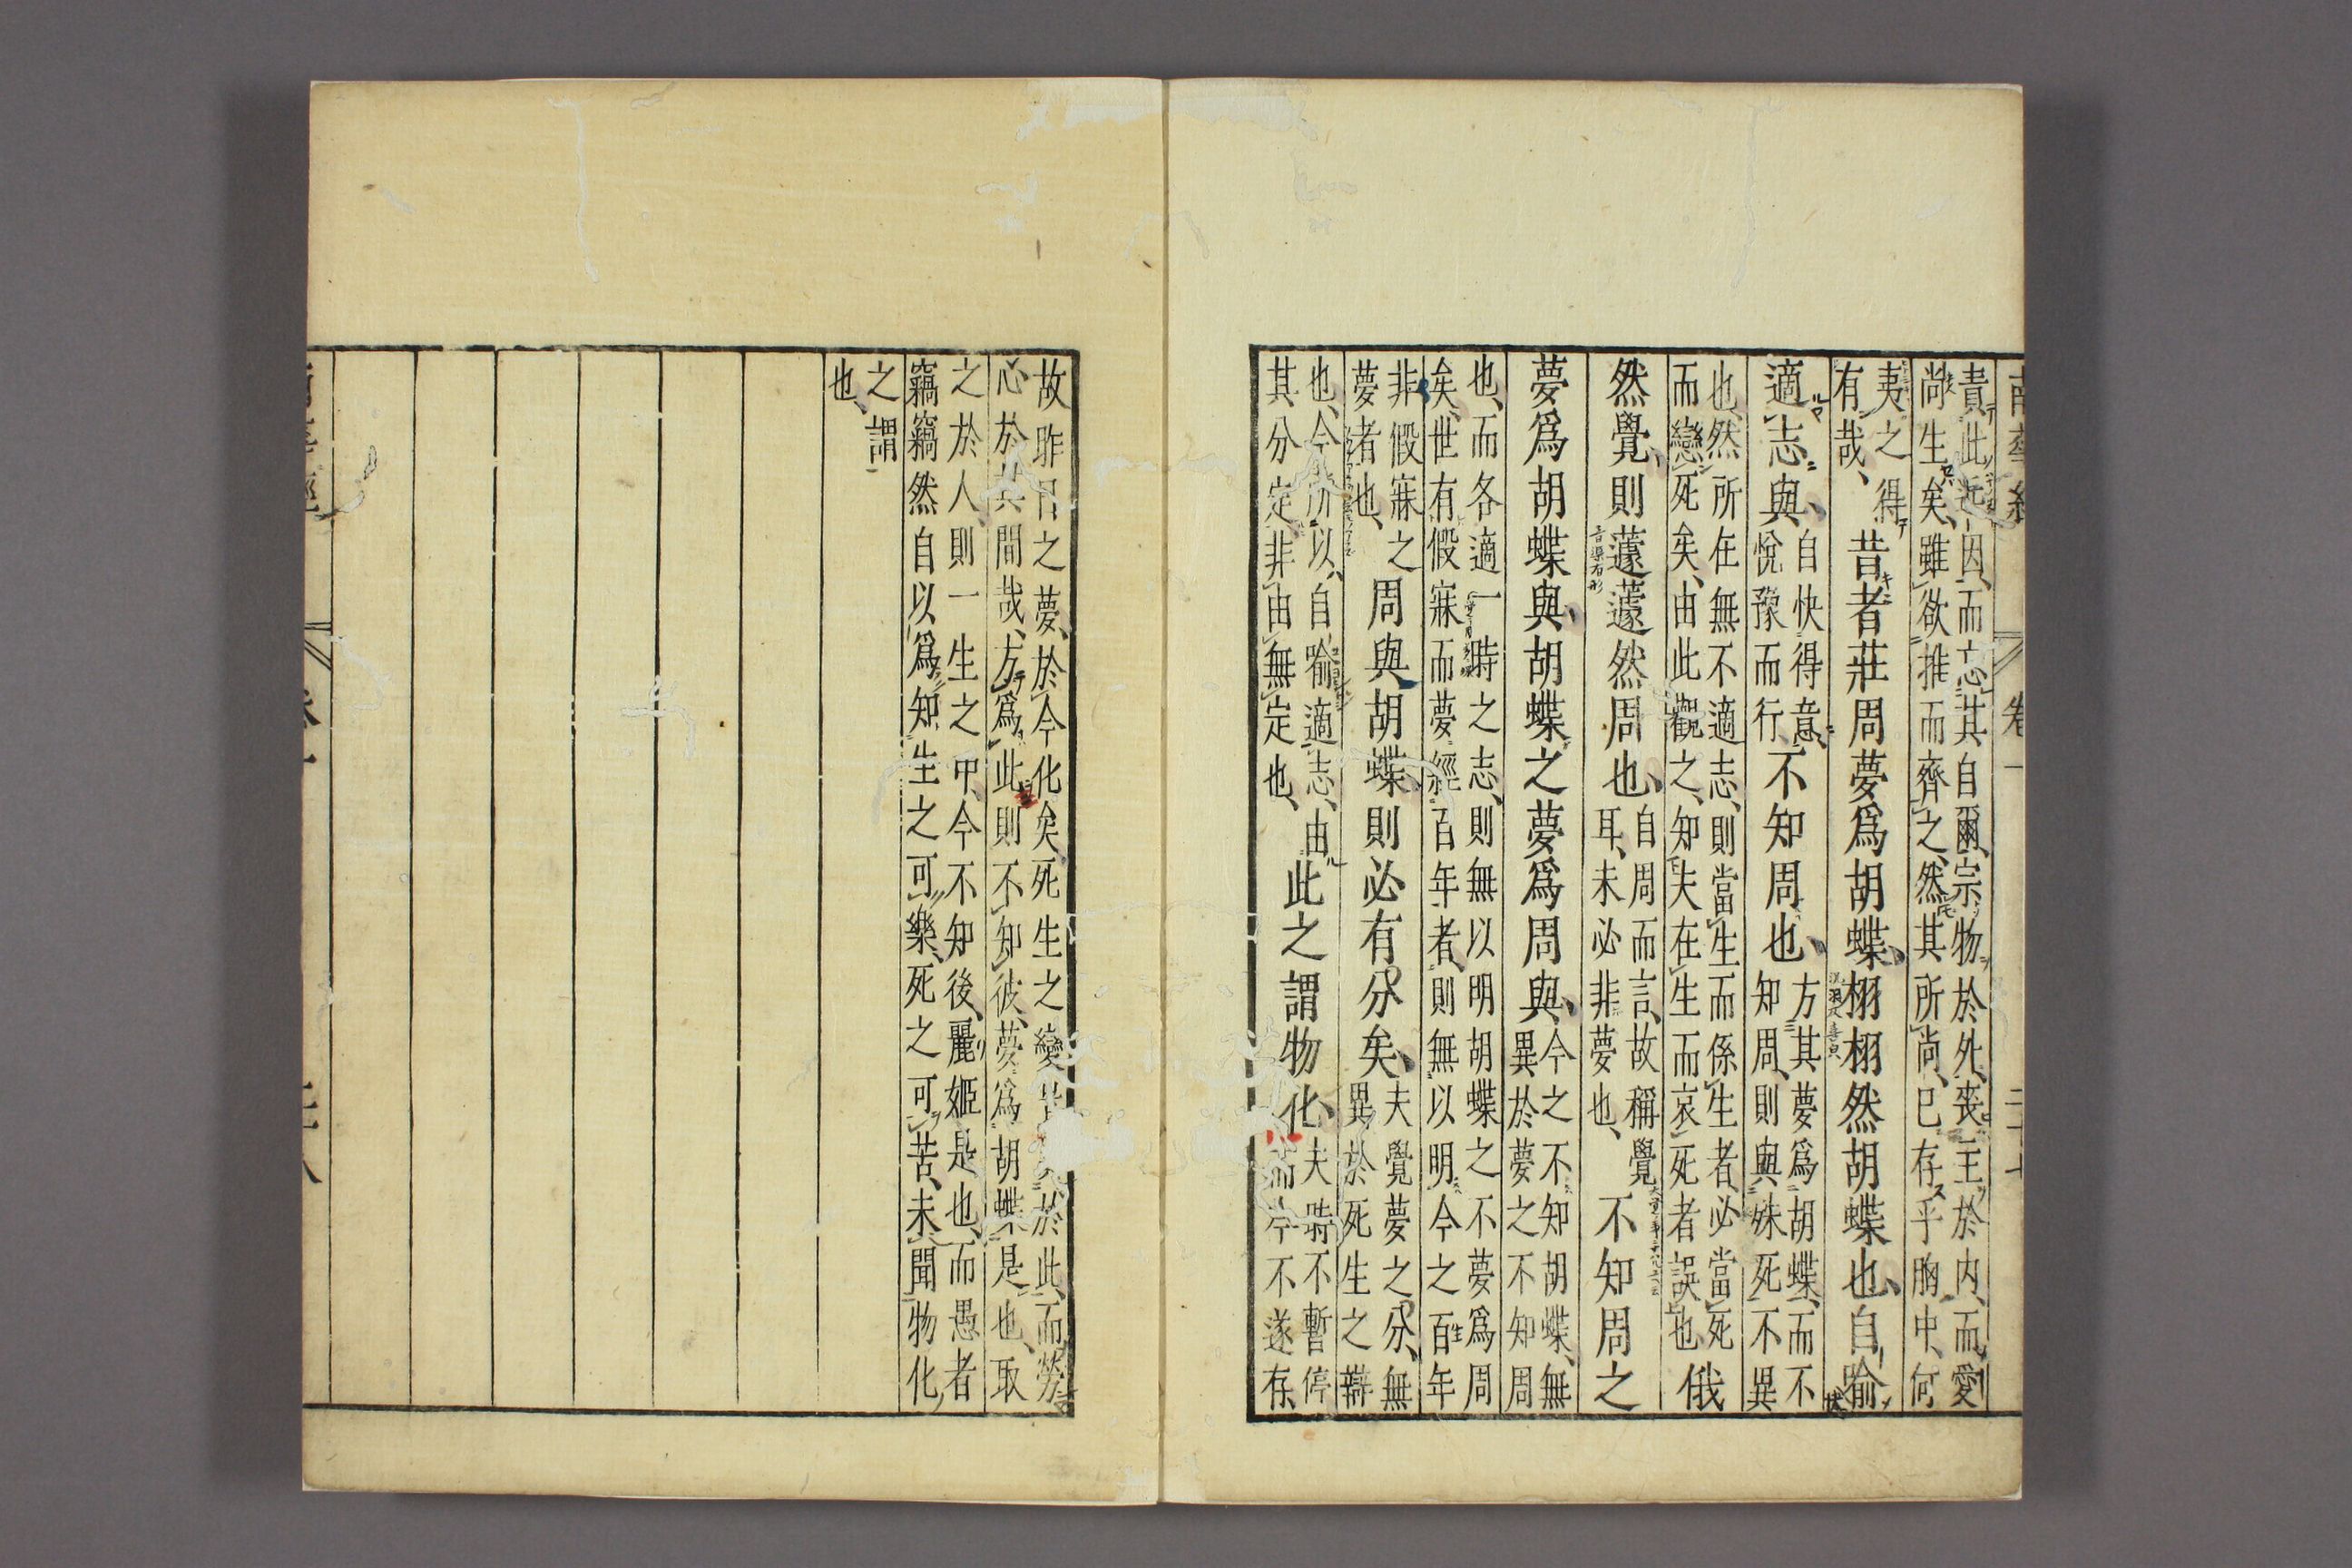 南華經 卷一 二十七
責此近因、而忘其自爾、宗物於外、喪主於内、而愛
尚生矣、雖欲推而齊之、然其所尚、已存乎胸中、何
夷之得
有哉、
昔者莊周夢爲胡蝶、栩栩然胡蝶也、自喻
適志與、
自快得意、
悅豫而行、
不知周也、
方其夢爲胡蝶、而不
知周、則與殊死不異
也、然所在無不適志、則當生而係生者、必當死
而戀死矣、由此觀之、知夫在生而哀死者誤也
俄
然覺、則蘧蘧然周也、
自周而言、故稱覺
耳、未必非夢也、
不知周之
夢爲胡蝶與、胡蝶之夢爲周與、
今之不知胡蝶、無
異於夢之不知周
也、而各適一時之志、則無以明胡蝶之不夢爲周
矣、世有假寐而夢經百年者、則無以明今之百年
非假寐之
夢者也、
周與胡蝶則必有分矣、
夫覺夢之分、無
異於死生之辯
也、今所以、自喻適志、由
其分定、非由無定也、
此之謂物化、
夫時不暫停
而今不遂存
故昨日之夢、於今化矣、死生之變豈異於此、而勞
心於其間哉、方爲此則不知彼、夢爲胡蝶是也、取
之於人、則一生之中、今不知後、麗姬是也、而愚者
竊竊然自以爲知生之可樂、死之可苦、未聞物化
之謂
也、